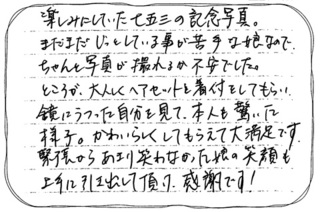 楽しみにしていた七五三の記念写真。
まだまだじっとしている事が苦手な娘なので、
ちゃんと写真が撮れるか不安でした。
ところが、大人しくヘアセットと着付をしてもらい、
鏡にうつった自分を見て、本人も驚いた
様子。かわいらしくしてもらえて大満足です。
緊張からあまり笑わなかった娘の笑顔も
上手に引き出して頂り、感謝です!